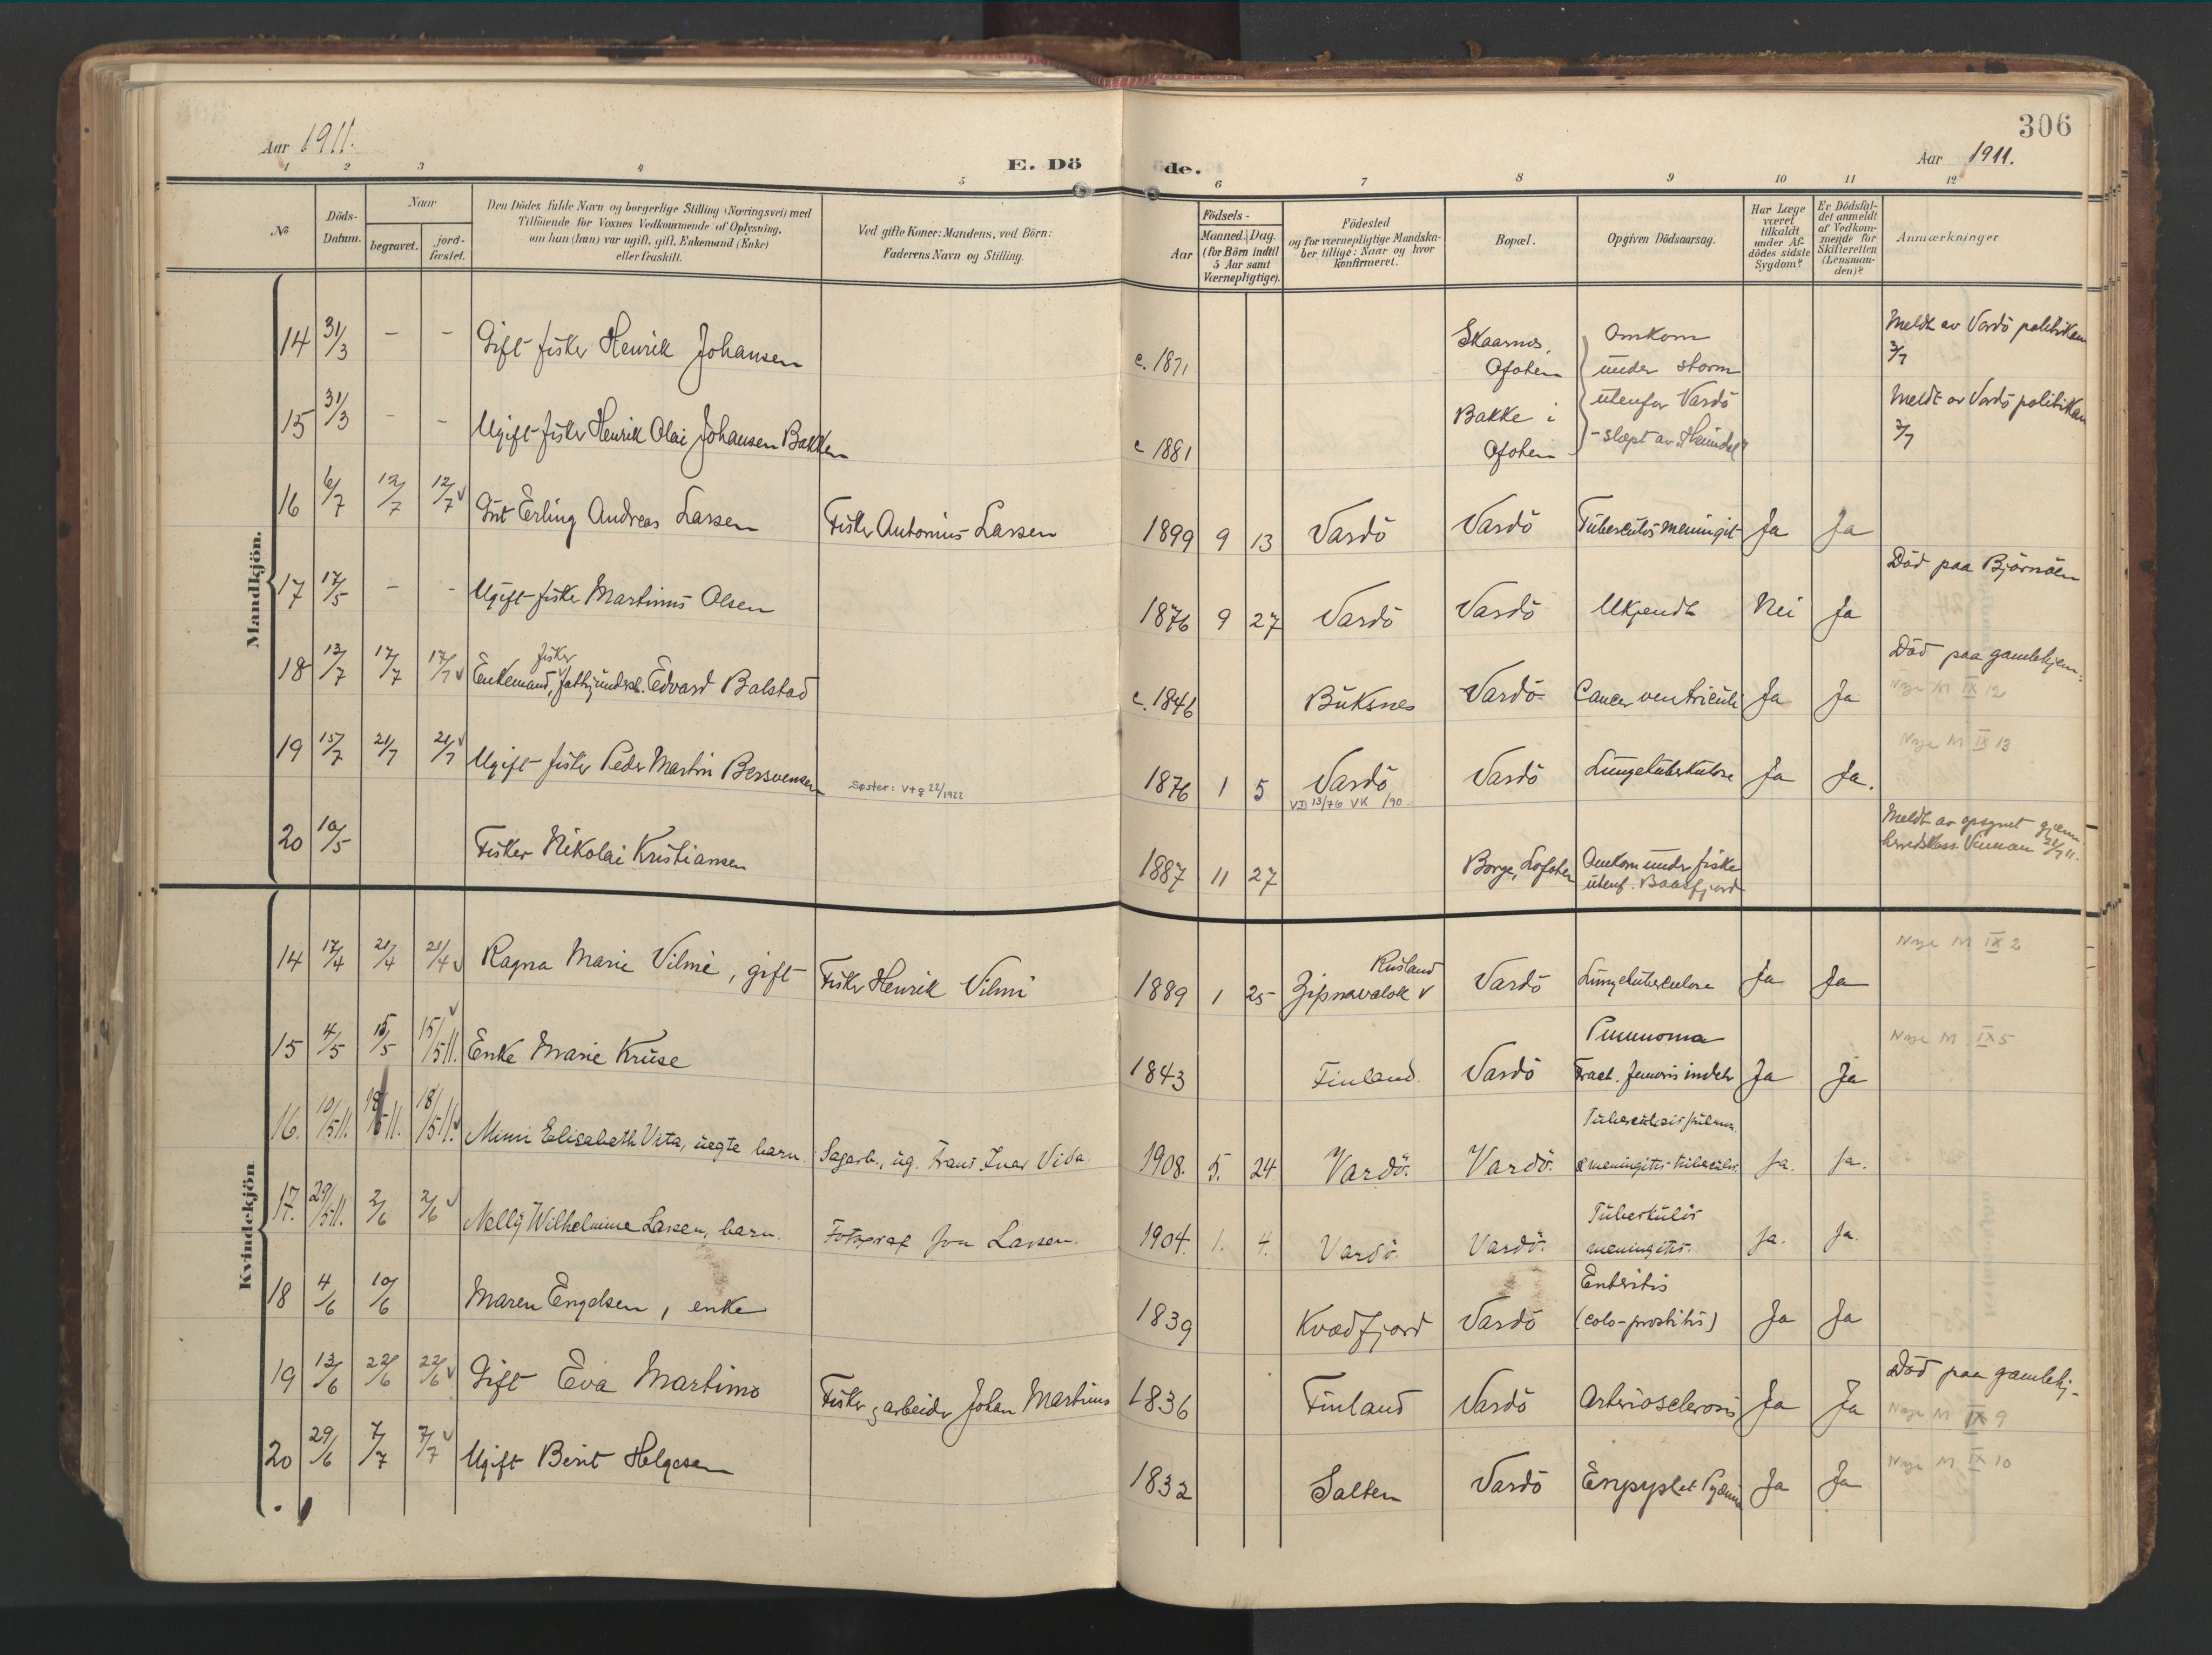 306
Aar 1911.
E. Dö
de.
Aar 1911.
1 2 3 4 5 6 7 8 9 10 11 12
No
Döds-Datum.
Naar
begravet.
jord-fæstet.
Den Dödes fulde Navn og borgerlige Stilling (Næringsvei) med
Tilföiende for Voxnes Vedkommende af Oplysning,
om han (hun) var ugift, gift, Enkemand (Enke)
eller fraskilt.
Ved gifte Koner: Mandens, ved Börn:
Faderens Navn og Stilling.
Födsels-
Aar
Maaned. Dag.
(for Börn indtil
5 Aar samt
Værnepligtige).
Födested
og for værnepligtige Mandska-
ber tillige: Naar og hvor
konfirmeret.
Bopæl.
Opgiven Dödsaarsag.
Har Læge
været
tilkaldt
under Af-
dödes sidste
Sygdom?
Er Dödsfal-
det anmeldt
af Vedkom-
mende for
Skifteretten
(Lensman-
den)?
Anmærkninger
Mandkjön.
14 31/3 - - Gift fisker Henrik Johansen c. 1871 Skaarnes, Ofoten Omkom under storm Meldt av Vardö politikam 3/7
15 31/3 - - Ugift fisker Henrik Olai Johansen Bakken c 1881 Bakke i Ofoten utenfor Vardö - slept av "Heimdal" Meldt av Vardö politikam 3/7
16 6/7 12/7 12/7 v Gut Erling Andreas Larsen Fisker Antonius Larsen 1899 9 13 Vardö Vardö Tuberculös meningit Ja Ja
17 17/5 - - Ugift fisker Martinus Olsen 1876 9 27 Vardö Vardö Ukjendt Nei Ja Död paa Björnöen
18 12/7 17/7 17/7 v Enkemand, fisker, fattigunderst. Edvard Balstad c. 1846 Buksnes Vardö Cancer ventriculi Ja Ja Död paa gamlehjem:
Nye M IX 12
19 15/7 21/7 21/7 v Ugift fisker Peder Martin Bersvensen Søster: V+♀ 22/1922 1876 1 5 Vardö Vardö Lungetuberkulose Ja Ja. Nye M IX 13
VD 13/76 VK /90
20 10/5 Fisker Nikolai Kristiansen 1887 11 27 Borge, Lofoten Omkom under fiske utenf. Baadsfjord Meldt av opsynet gjenn.
21/7 11.
Kvindekjön
14 17/4 21/4 21/4 v Ragna Marie Vilmi, gift Fisker Henrik Vilmi 1889 1 25 Zipnavalok v Rusland Vardö Lungetuberculose Ja Ja Nye M IX 2
15 4/5 15/5 15/5 11. v Enke Marie Kruse 1843 Finland. Vardö Pneumonia Fract. femoris Ja Ja Nye M IX 5
16. 10/5 11. 18/5 11. 18/5 11. v Mimi Elisabeth Vita, uegte barn. Sagarb., ug. Frans Ivar Vida. 1908. 5. 24. Vardö. Vardö. Tuberculosis pulmon. & meningitis tubercul. Ja. Ja.
17. 29/5 11. 2/6 2/6 v Nelly Wilhelmine Larsen, barn. Fotograf Larsen. 1904. 1. 4. Vardö. Vardö. Tuberkulös meningitis. Ja. Ja.
18 4/6 10/6 Maren Engelsen, enke 1839 Kvædfjord Vardö Enteritis (colo-proktitis) Ja Ja
19 13/6 22/6 22/6 v Gift Eva Martimo Fisker, arbeider Johan Martimo 1836 Finland Vardö Arteriosclerosis Ja Ja Död paa gamlehj-
Nye M IX 9
20 29/6 7/7 7/7 v Ugift Berit Helgesen 1832 Salten Vardö Ja Ja Nye M IX 10